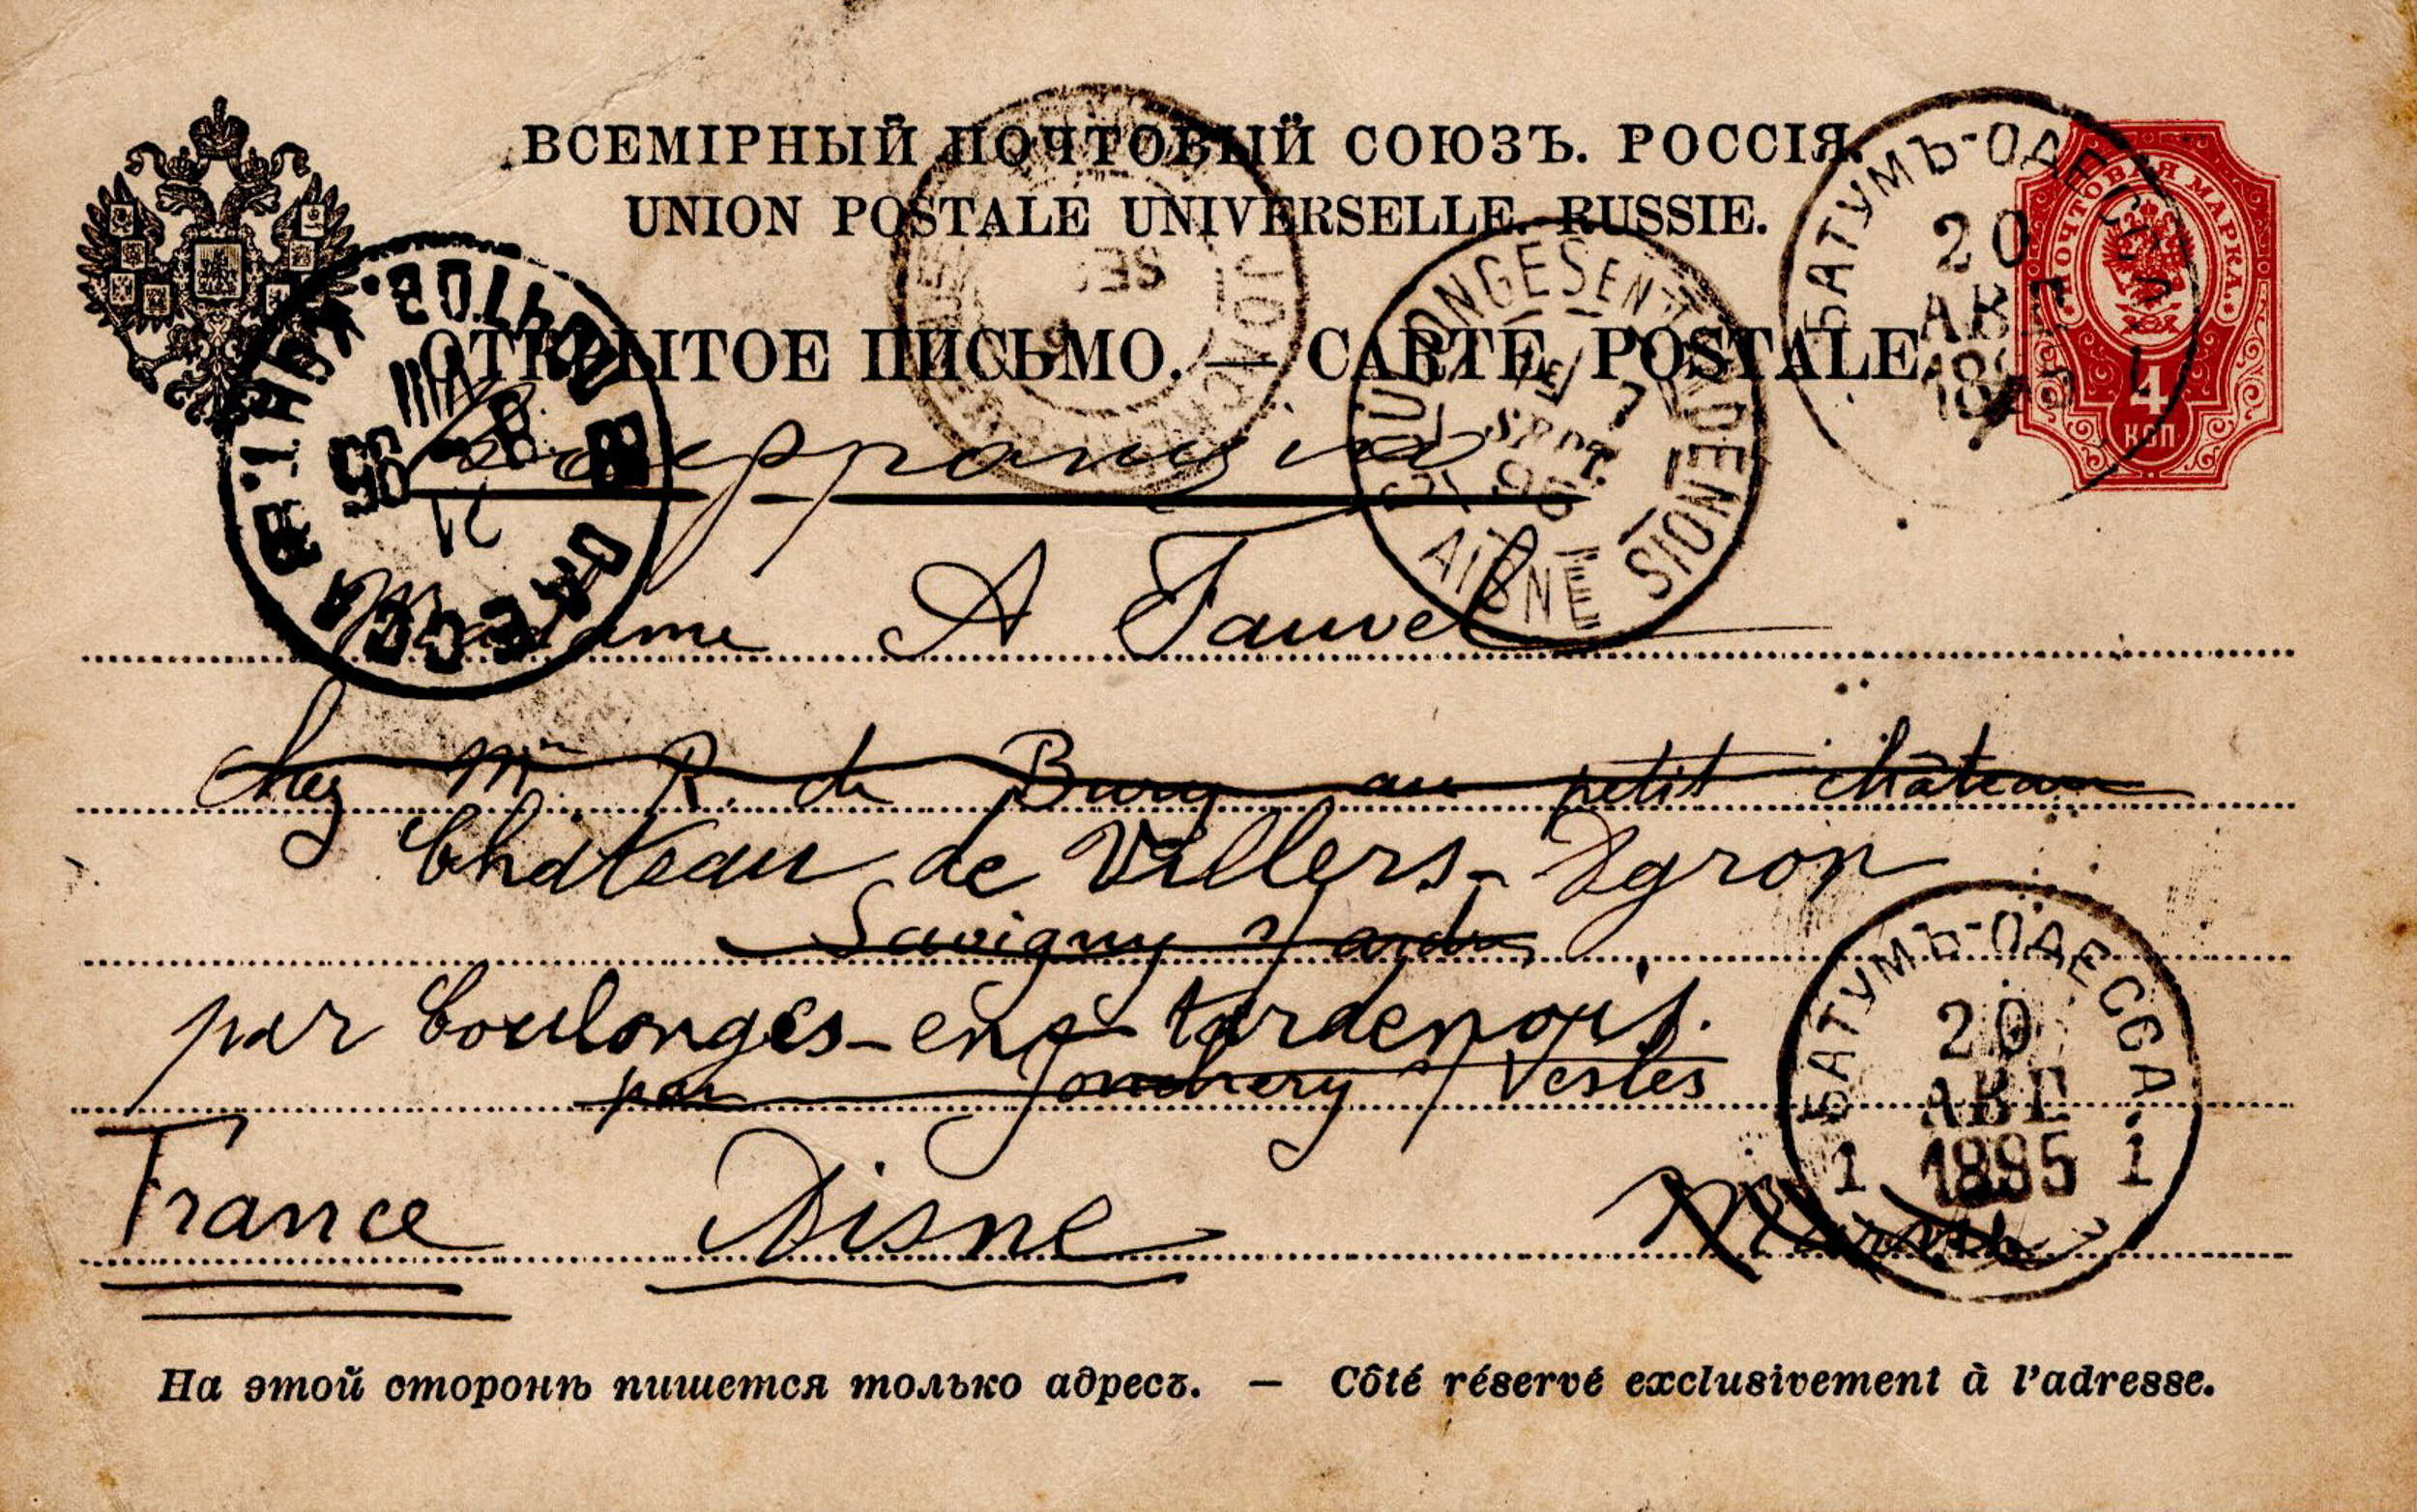 ВСЕМІРНЫЙ ПОЧТОВЫЙ СОЮЗЪ. РОССІЯ.
UNION POSTALE UNIVERSELLE. RUSSIE.
ОТКРЫТОЕ ПИСЬМО. — CARTE POSTALE.
ПОЧТОВАЯ МАРКА.
4
КОП
БАТУМЪ-ОДЕССА
20
АВГ
1895
1
ОДЕССА
VIII
95
21
SEP
JONCHERY
COULONGES EN TARDENOIS
7
SEPT.
95
AISNE
Madame A Fauvel
chez Mme R. de Bury au petit château
Château de Villers-Agron
Savigny s/ardres
par Coulonges-en-tardenois.
par Jonchery s/ Vesles
France Aisne Marne
БАТУМЪ-ОДЕССА
20
АВГ
1895
1 1
На этой сторонѣ пишется только адресъ. — Côté réservé exclusivement à l'adresse.